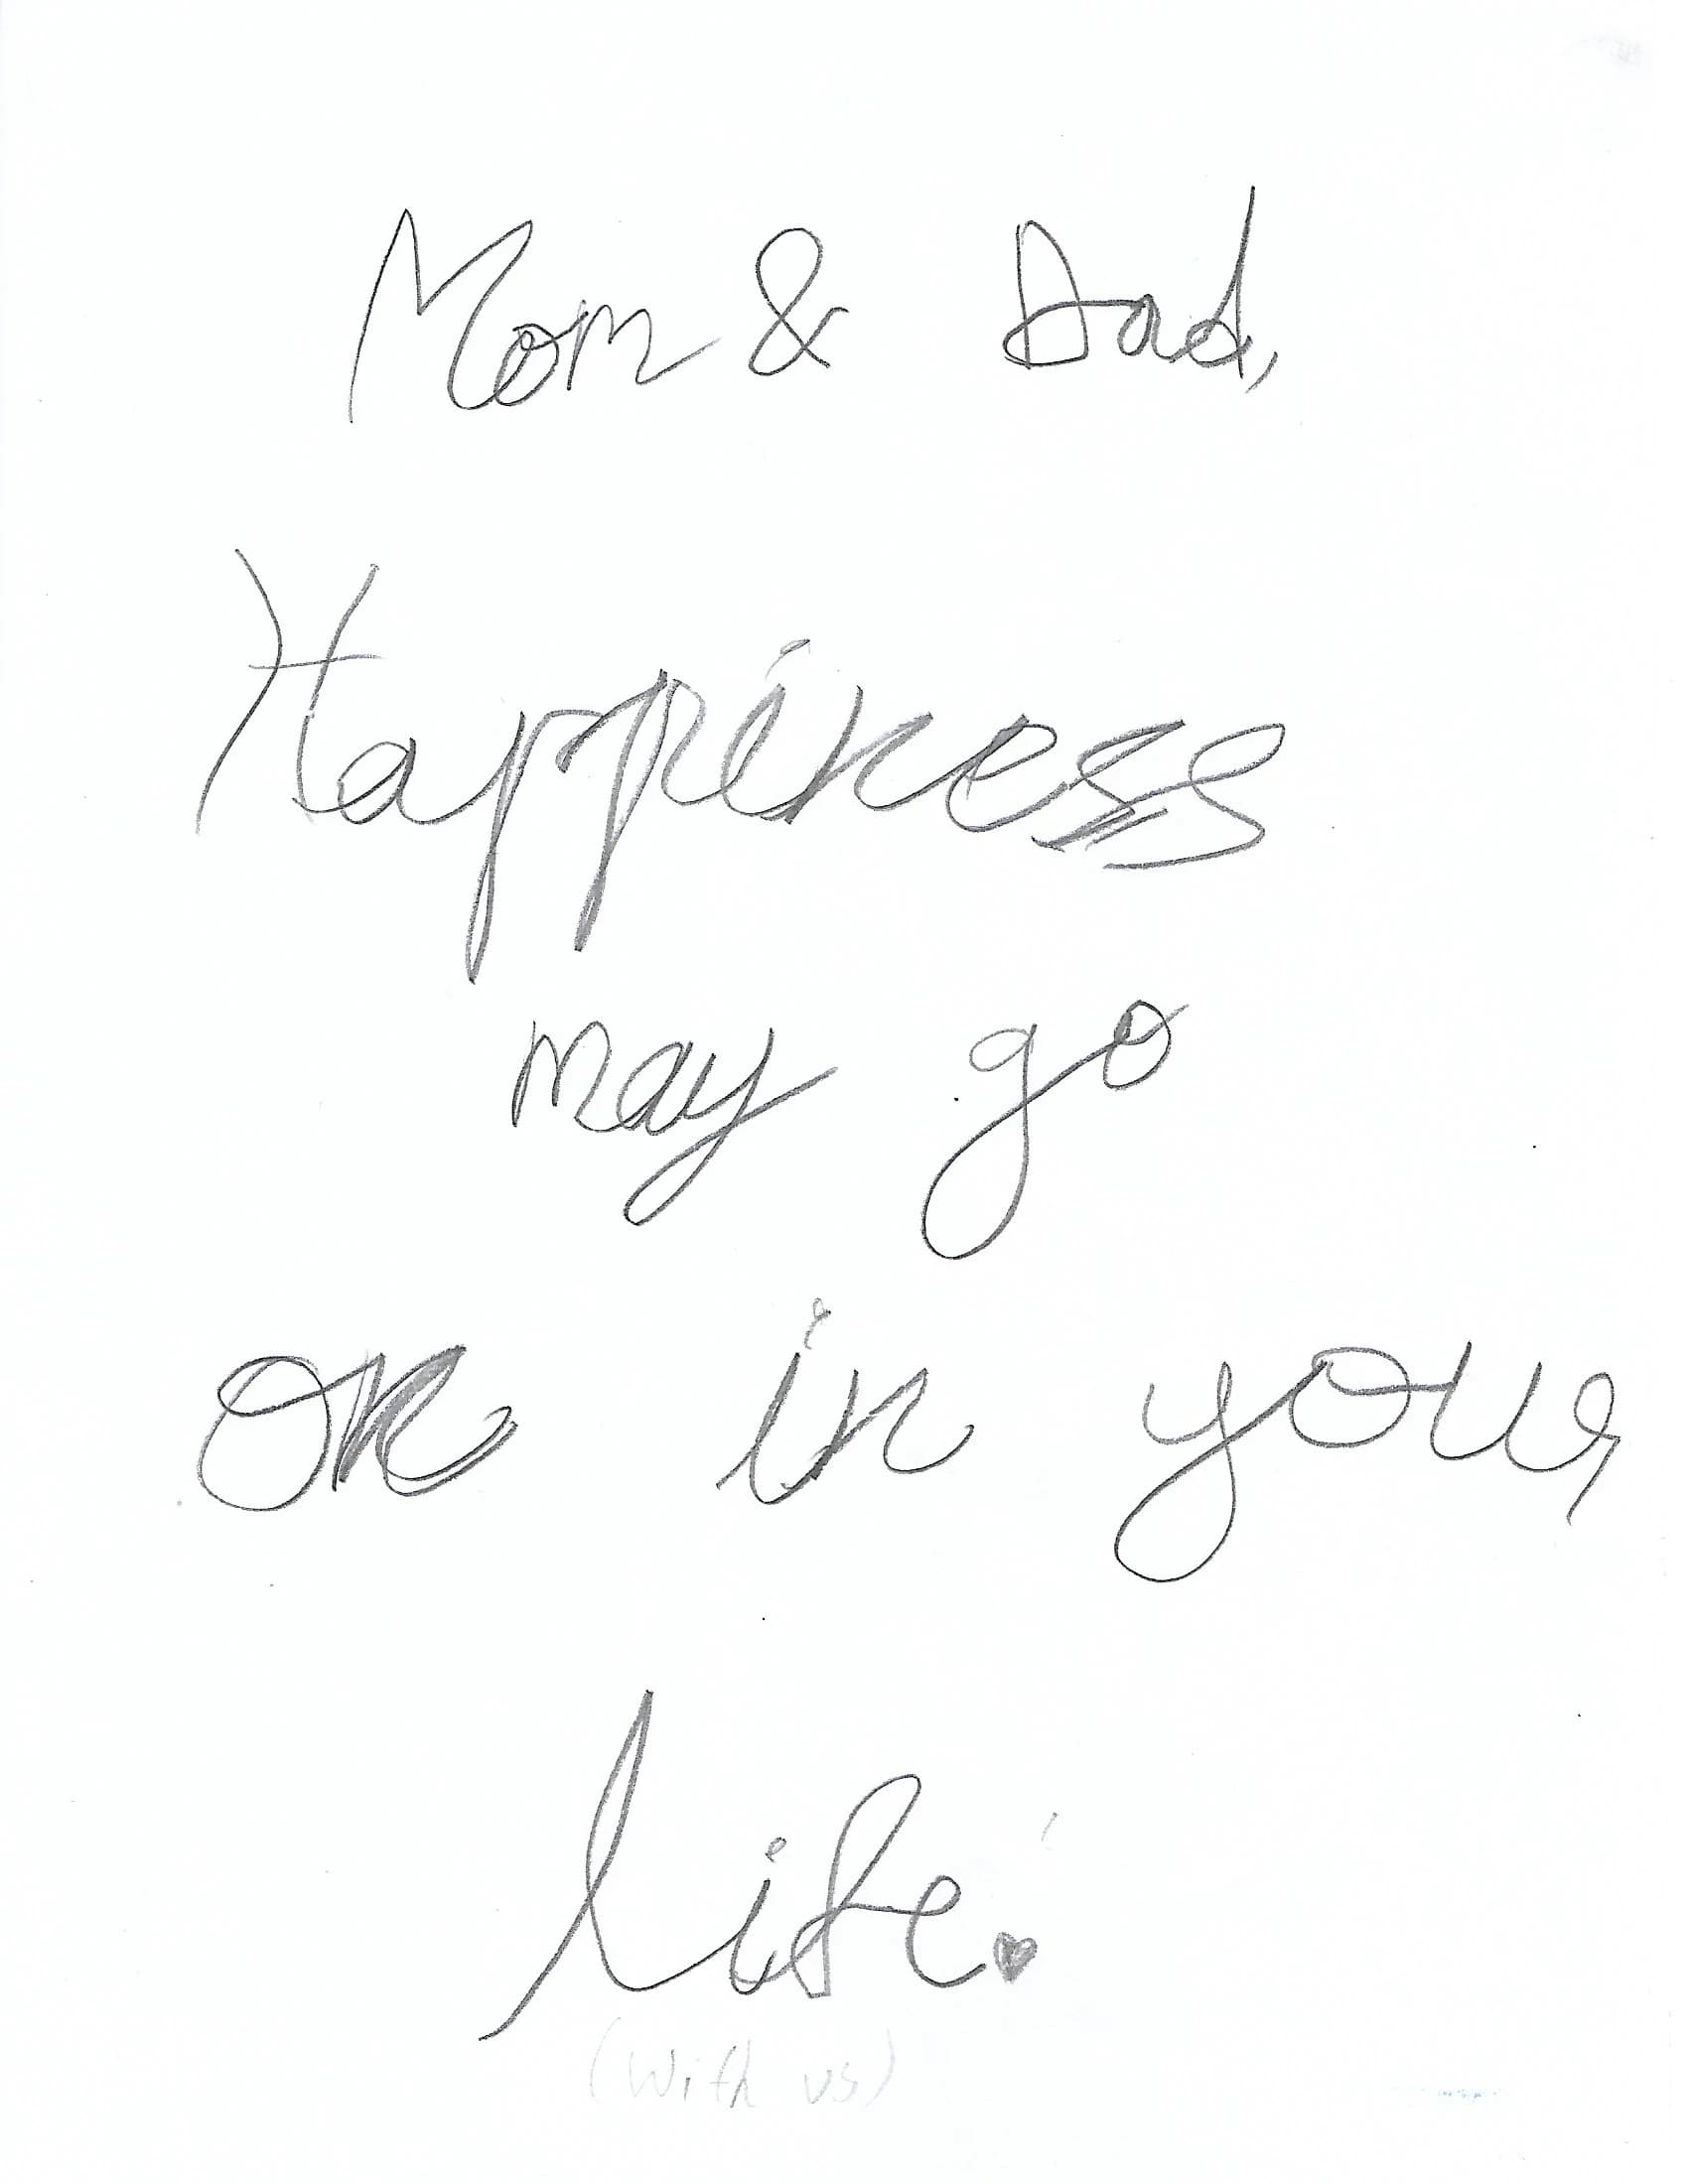 Mom & Dad,
Happiness
may go
on in your
life.
(with us)